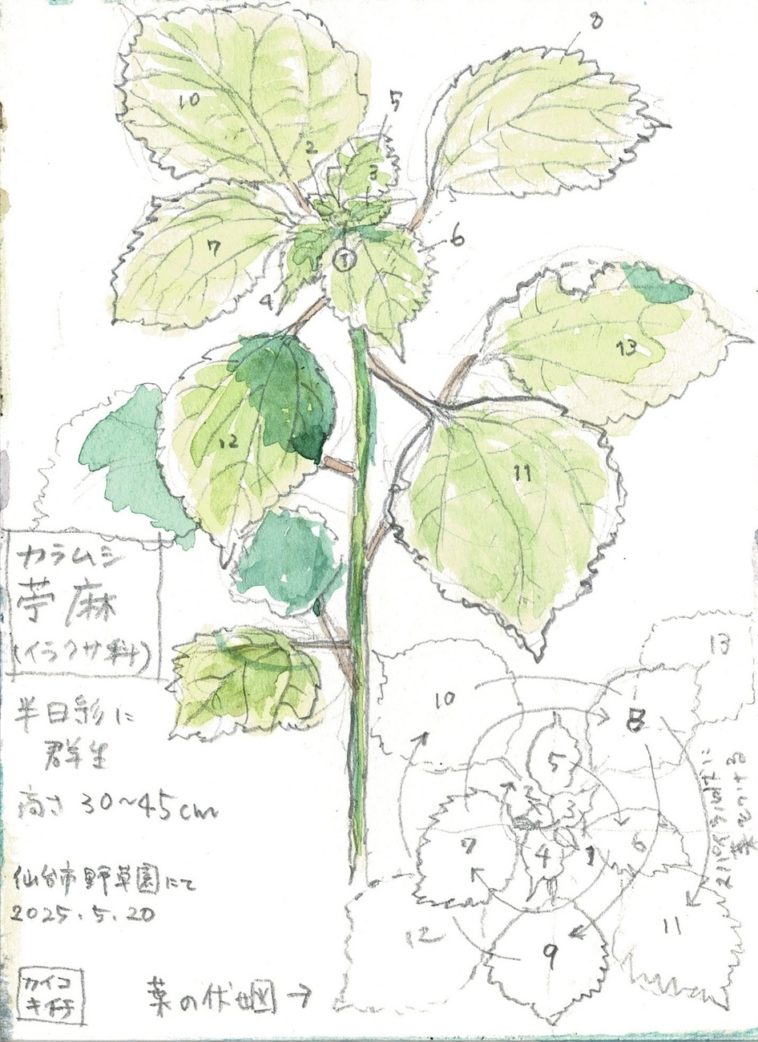 8
10
5
2
3
7
6
①
4
13
12
11
カラムシ
苧麻
(イラクサ科)
半日影に
群生
高さ 30~45cm
仙台市野草園にて
2025.5.20
カイコ
キイチ
葉の伏せ図→
13
10
8
5
2
7
4
6
12
11
9
葉をつける